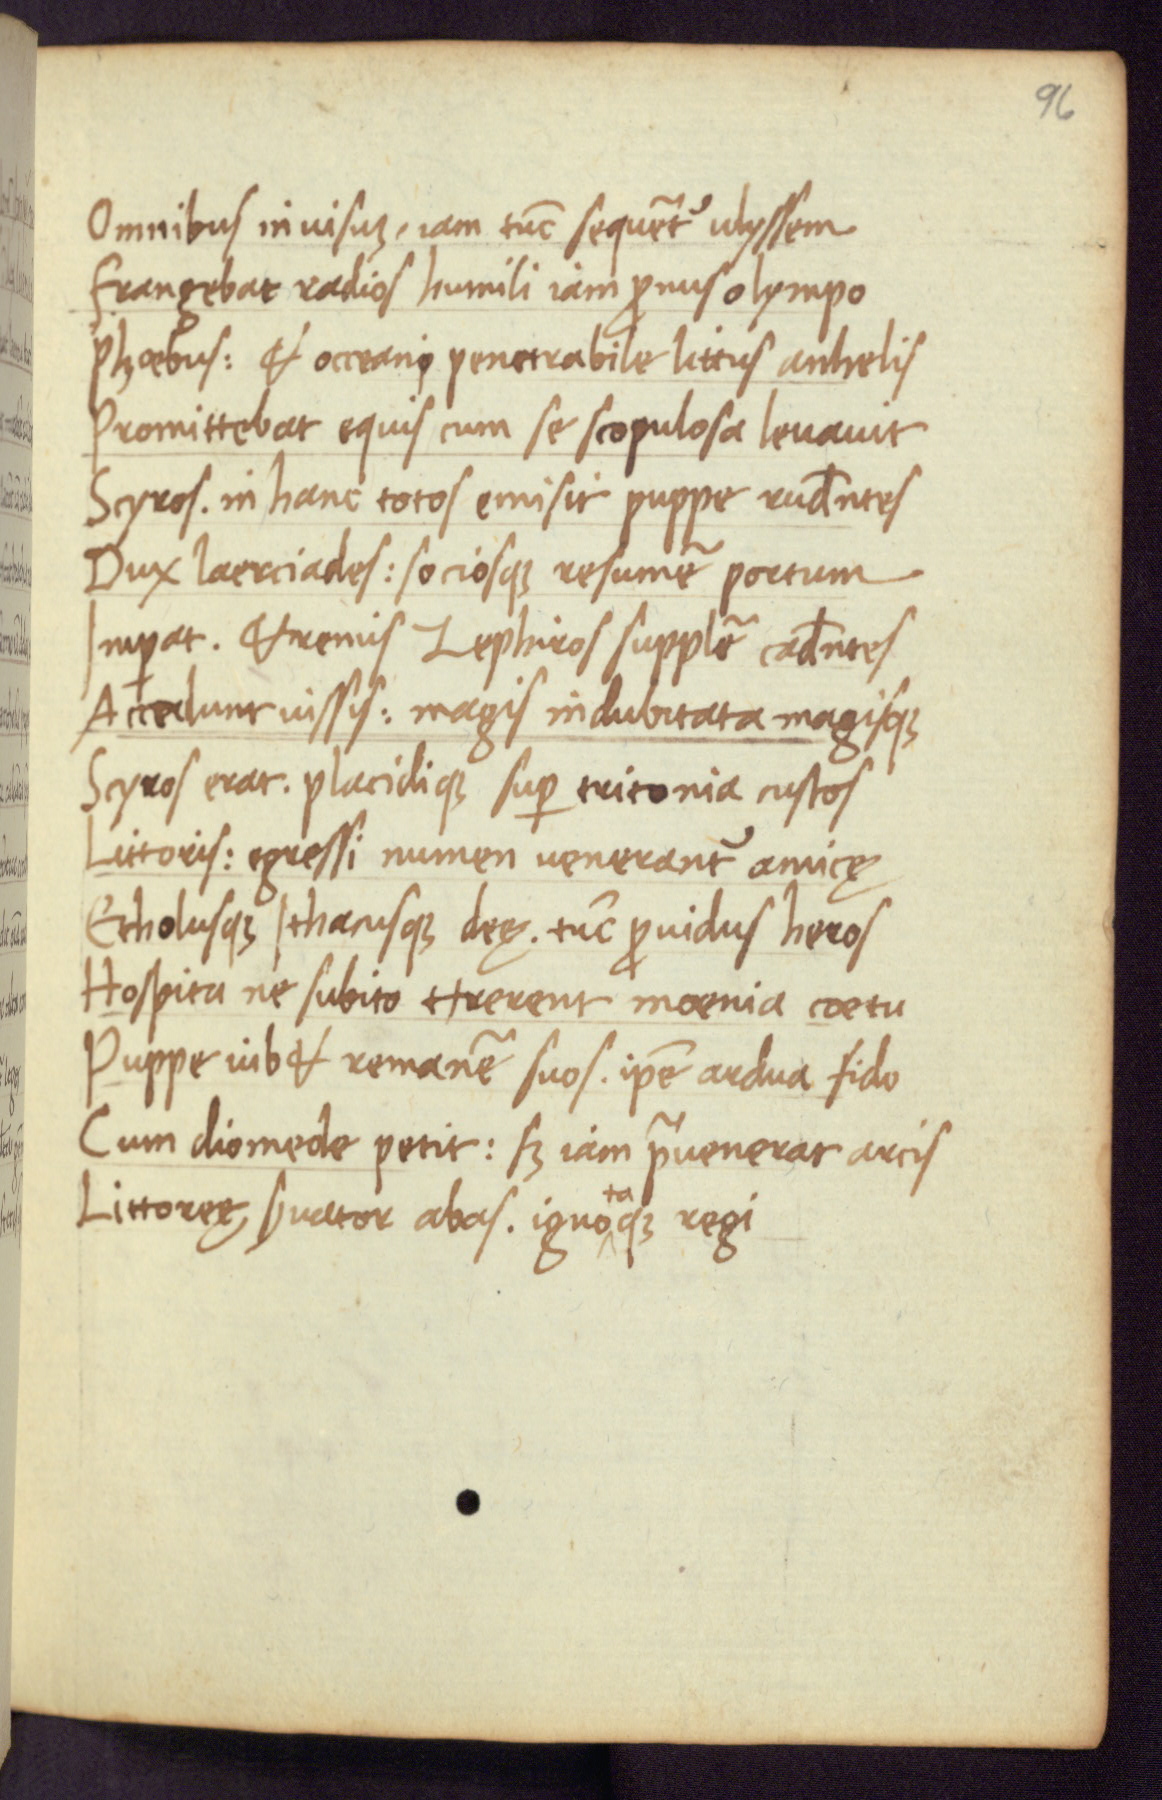 96
Omnibus inuisuꝫ, iam tūc sequēt᷑ ulyssem
Frangebat radios humili iam ꝓnus olympo
Phœbus: & occeani penetrabile littus anhelis
Promittebat equis cum se scopulosa leuauit
Scyros. in hanc totos emisit puppe rudentes
Dux laerciades: sociosqꝫ resumē portum
Imꝑat. & remis Zephiros supplē cadentes
Accedunt iussis: magis indubitata magisqꝫ
Scyros erat. placidiqꝫ suꝑ tritonia custos
Littoris: egressi numen uenerant᷑ amicę
Etholusqꝫ Ithacusqꝫ deę. tūc ꝓuidus heros
Hospita ne subito tererent moenia coetu
Puppe iub& remanē suos. ip̄e ardua fido
Cum diomede petit: sꝫ iam p̄uenerat arcis
Littoreę, s̄uator abas. ignotaqꝫ regi